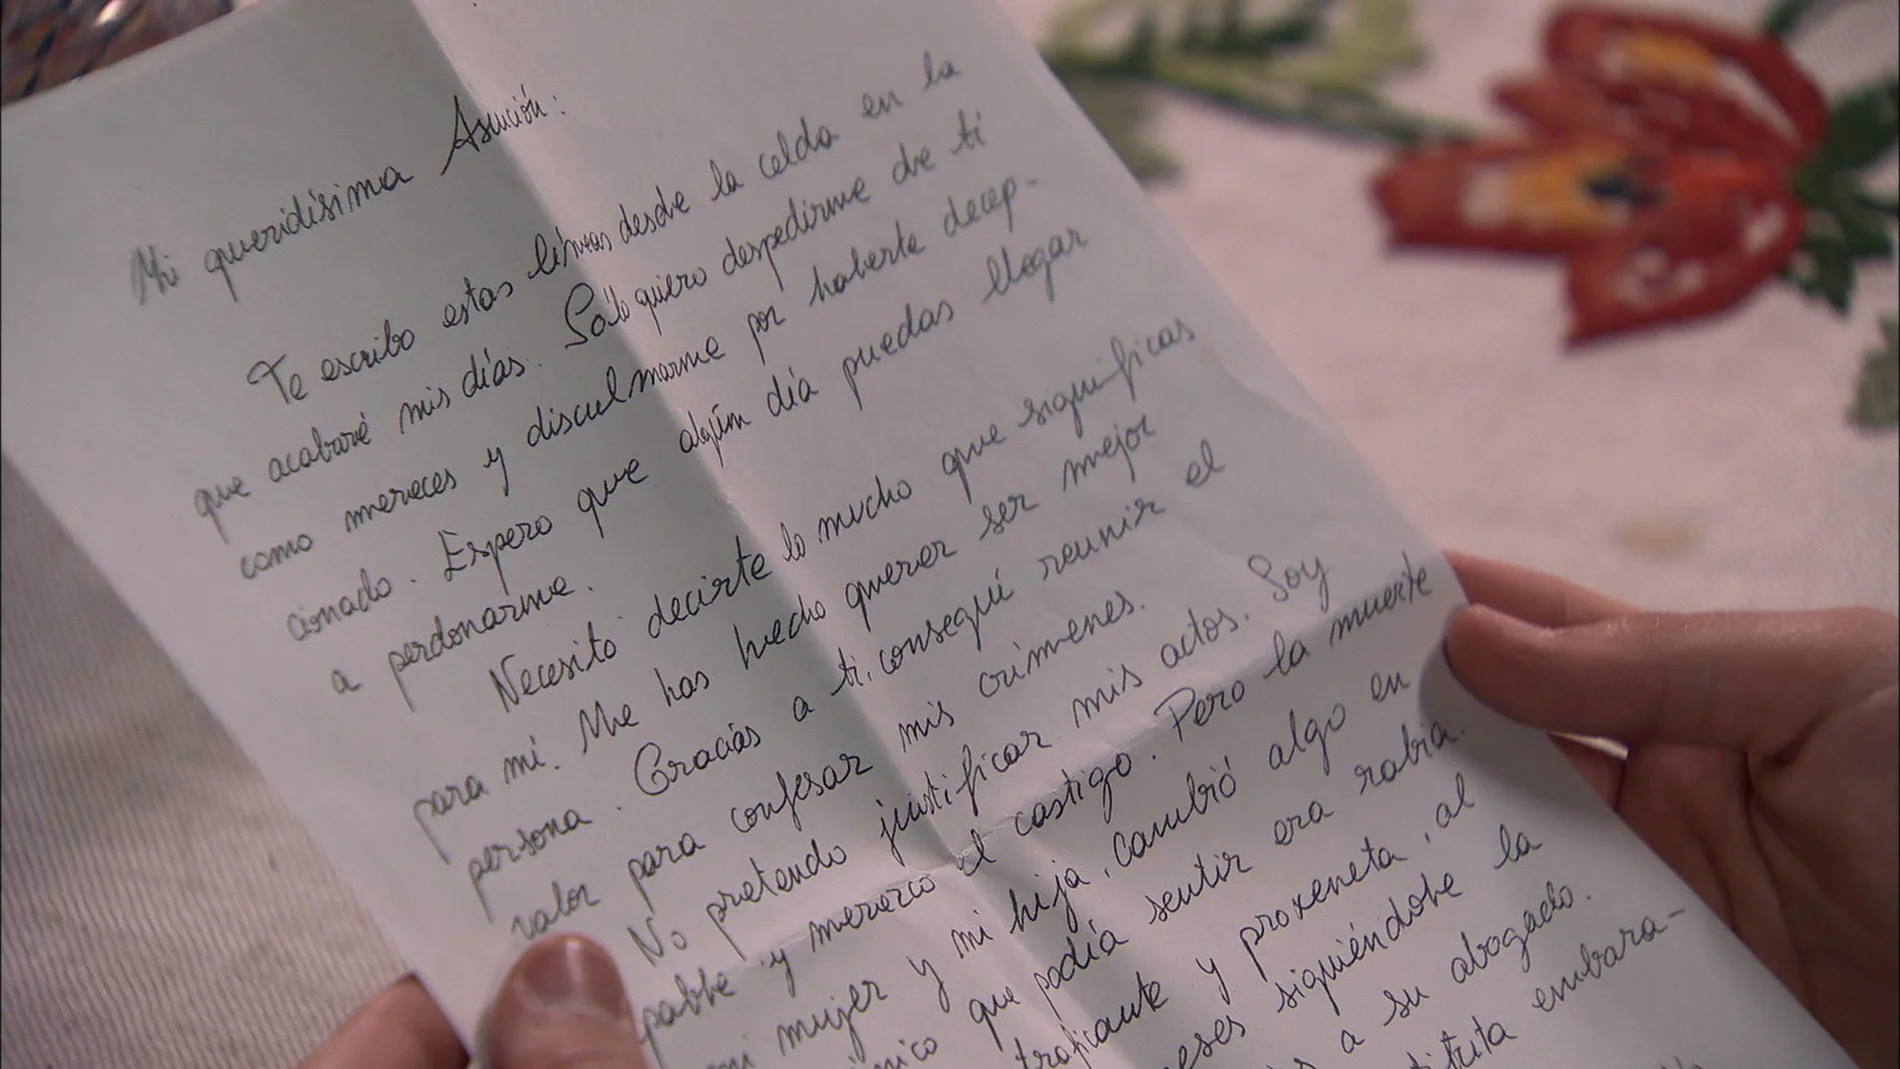 Mi queridísima Asunción:
Te escribo estas líneas desde la celda en la
que acabaré mis días. Sólo quiero despedirme de ti
como mereces y disculmarme por haberte decep-
cionado. Espero que algún día puedas llegar
a perdonarme.
Necesito decirte lo mucho que significas
para mí. Me has hecho querer ser mejor
persona. Gracias a ti, conseguí reunir el
valor para confesar mis crímenes.
No pretendo justificar mis actos. Soy
pable y merezco el castigo. Pero la muerte
mi mujer y mi hija, cambió algo en
nico que podía sentir era rabia.
traficante y proxeneta, al
eses siguiéndole la
a su abogado.
tituta embara-